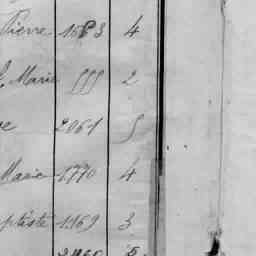 Pierre 1683 4
Marie 555 2
2061 5
Marie 1770 4
ptiste 1169 3